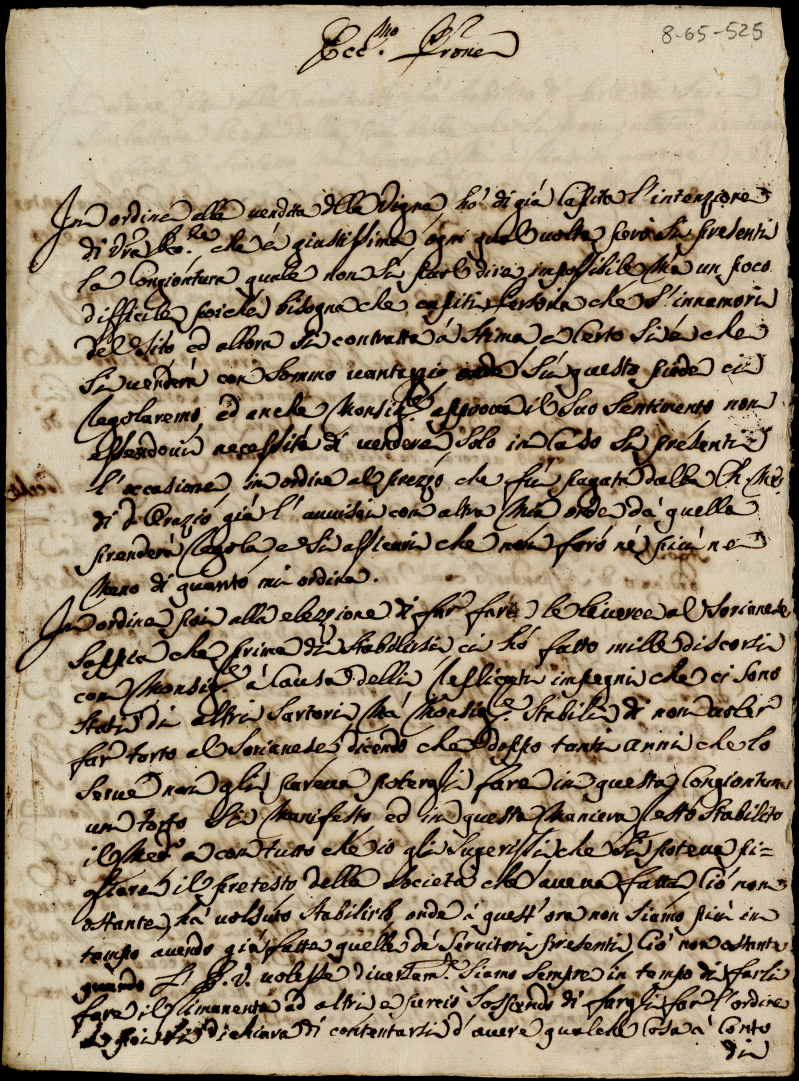 8-65-525
Ecc.mo Prone
In ordine alla vendita della Vigna, hò di già capita l'intenzione
di Vra Ecc.za che è giustissima ogni qual volta però si presenti
la Congiontura quale non si può dire impossibile Mà un poco
difficile poiche bisogna che capiti persona che s'innamori
del Sito ed allora si contratta à stima e certo si è che
si venderà con sommo vantaggio onde sù questo piede ci
regolaremo, ed anche Monsig.re approva il suo sentimento non
essendovi necessità di vendere solo in caso si presenti
l'occasione, in ordine al prezzo che fù pagata dalla Ch. Me.
di D. Orazio già l'avvisai con altra Mia onde da quella
prenderà regola, e si assicuri che non farò nè più ne
Meno di quanto mi ordina.
In ordine poi alla elezzione di far fare le livree al Sorianese
Sappia che prima di stabilirsi ci hò fatto mille discorsi
con Monsig.re à causa delli replicati impegni che ci sono
stati di altri Sartori Mà Monsig.re stabilì di non voler
far torto al Sorianese dicendo che doppo tanti anni che lo
serve non gli pareva potergli fare in questa Congiontura
un torto Manifesto ed in questa Maniera restò Stabilito
il Med.o e con tutto che io gli Sugerissi che si poteva pi=
gliare il pretesto della società che aveva fatta Ciò non
ostante, hà volsuto stabilirlo onde à quest'ora non siamo più in
tempo avendo già fatte quelle de Servitori presenti, Ciò non ostante
quando V. E. volesse diversam.te siamo sempre in tempo di farli
fare il rimanente ad altri e perciò sospendo di fargli far l'ordine
e poi si dichiara di contentarsi d'avere qualche cosa à conto
di